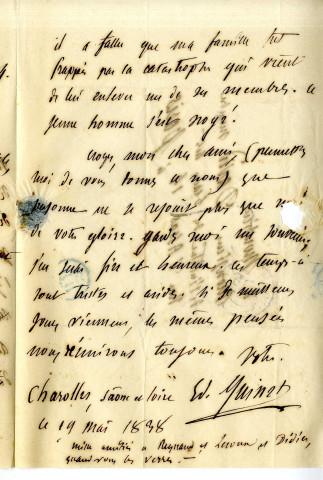 il a fallu que ma famille fut
frappée par la catastrophe qui vient
de lui enlever un de ses membres. ce
jeune homme s'est noyé!
croyez, mon cher ami, (permettez
moi de vous donner ce nom) que
personne ne se rejouit plus que moi
de votre gloire. gardez moi un souvenir,
j'en serai fier et heureux. ces temps-ci
sont tristes et arides. si de meilleurs
jours viennent, les mêmes pensées
nous réuniront toujours. Votre
Charolles, saône et loire Ed. Quinet
ce 19 mai 1838
mille amitiés à Reynaud et Leroux et Didier,
quand vous les verrez.—